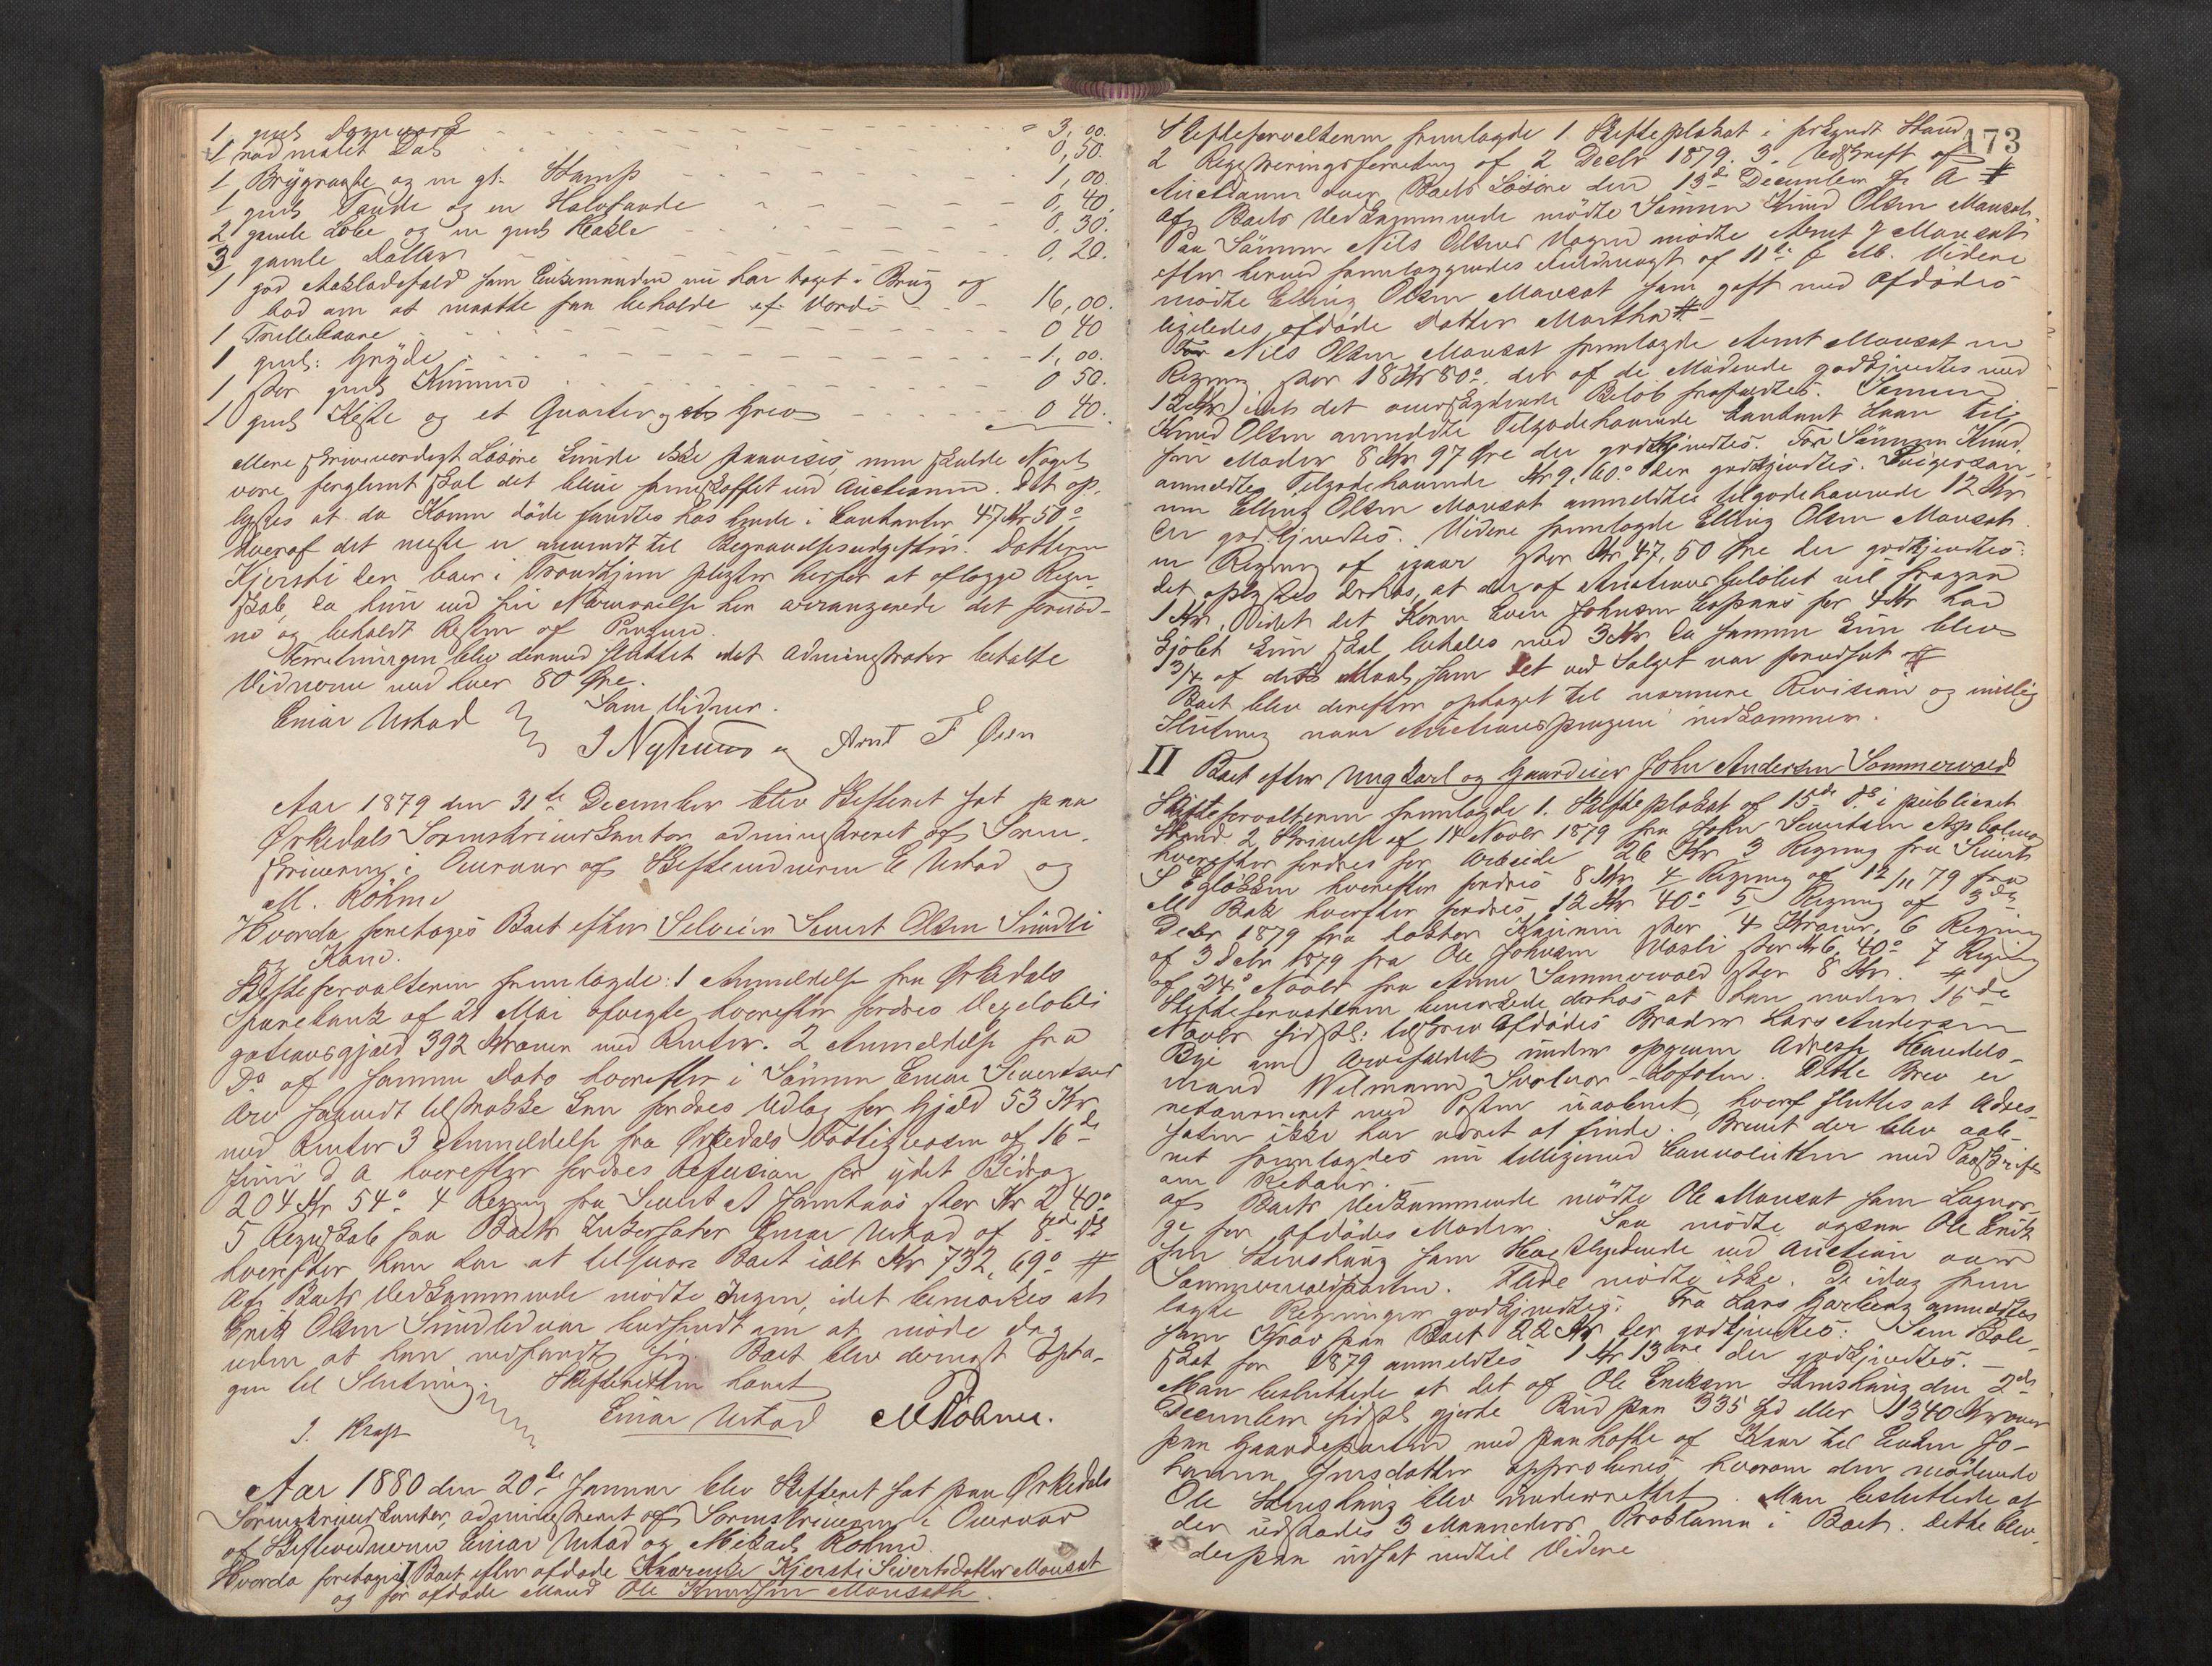 1 gml Dognværk - - - - - - - = 3,00.
1 rødmalet Dal - - - - - - - 0,50.
1 Brygraaste og en gl. Stamp - - - - - 1,00.
1 gml Tønde og en Halvtønde - - - - - 0,40.
2 gamle Løbe og en gml Hækle - - - - 0,30.
3 gamle Daller - - - - - - - 0,20.
1 god Aakladefald som Enkemanden nu har taget i Brug og
bad om at maatte faa beholde af Værdi - - 16,00.
1 Trillebaare - - - - - - - 0 40
1 gml: Gryde - - - - - - - 1,00.
1 stor gml Kumme - - - - - - 0 50.
1 gml Kiste og et Quarter gds Grev - - - - 0 40.
Mere skriveværdigt Løsøre kunde ikke paavises, men skulde Noget
være forglemt skal det blive fremskaffet ved Auctionen. Det op-
lystes at da Konen døde fandtes hos hende i Contanter 47 Kr 50 ø
hvoraf det meste er anvendt til Begravelsesudgifter. Datteren
Kjersti der boer i Trondhjem pligter herfor at aflægge Regn-
skab, da hun ved sin Nærværelse her arrangerede det fornød-
ne og beholdt Resten af Pengene.
Forretningen blev dermed sluttet idet Administrator betalte
Vidnerne med hver 80 Øre.
Einar Ustad Som Vidner.
J Nyhuus og Arnt F Øien
Aar 1879 den 31te December blev Skifteret sat paa
Ørkedals Sorenskriverkontor administreret af Soren-
skriveren i Overvær af Skiftevidnerne E Ustad og
M. Røhme
Hvorda foretoges Boet efter Selveier Sivert Olsen Sundli
og Kone.
Skifteforvalteren fremlagde: 1 Anmeldelse fra Ørkedals
Sparebank af 21 Mai afvigte, hvorefter fordres Vexelobli
gationsgjæld 392 Kroner med Renter. 2 Anmeldelse fra
Do af samme Dato hvorefter i Sønnen Einar Sivertsens
Arv saavidt tilstrække kan fordres Udlæg for Gjæld 53 Kr
med Renter 3 Anmeldelse fra Ørkedals Fattigvæsen af 16de
Juni d A hvorefter fordres Refusion for ydet Bidrag
204 Kr 54 ø 4 Regning fra Sivert A Hamhaas stor Kr 2,40 ø
5 Regnskab fra Boets Inkassator Einar Ustad af 8de ds
hvorefter han har at tilsvare Boet ialt Kr 732,69 ø #
Af Boets Vedkommende mødte Ingen, idet bemærkes at
Erik Olsen Sundli var budsendt om at møde dog
uden at han indfandt sig. Boet blev dernæst opta-
gen til Slutning. Skifteretten hævet
J. Kraft Einar Ustad M Røhme.
Aar 1880 den 20de Januar blev Skifteret sat paa Ørkedals
Sorenskriverkontor, administreret af Sorenskriveren i Overvær
af Skiftevidnerne Einar Ustad og Mikael Røhme.
Hvorda foretoges I Boet efter afdøde Kaarenke Kjersti Sivertsdatter Mousat
og før afdøde Mand Ole Knudsen Mousath.
173
Skifteforvalteren fremlagde 1. Skifteplakat i forkyndt Stand
2 Registreringsforretning af 2 Decbr 1879. 3. Udskrift af
Auctionen over Boets Løsøre den 13de December f. A #
Af Boets Vedkommende mødte Sønnen Knud Olsen Mousat.
Paa Sønnen Nils Olsens Vegne mødte Arnt J Mousat
efter herved fremlæggendes Fuldmagt af 11te f M. Videre
mødte Elling Olsen Mousat som gift med Afdødes
ligeledes afdøde Datter Martha #
For Nils Olsen Mousat fremlagde Arnt Mousat en
Regning stor 18 Kr 80 ø, der af de Mødende godkjendtes med
12 Kr idet det overskydende Beløb frafaldtes. Sønnen
Knud Olsen anmeldte Tilgodehavende kontant Laan til
sin Moder 8 Kr 97 Øre der godkjendtes. For Sønnen Knud
anmeldtes Tilgodehavende Kr 9,60 ø der godkjendtes. Svigersøn-
nen Elling Olsen Mousat anmeldtes tilgodehavende 12 Kr
der godkjendtes. Videre fremlagde Elling Olsen Mousat
en Regning af igaar stor Kr 47,50 Øre der godkjendtes:
det oplystes derhos, at der af Auctionsbeløbet vil fragaa
1 Kr. Idet det Korn Even Johnsen Espaas for 4 Kr har
kjøbt kun skal betales med 3 Kr da samme kun blev
3/4 af det Maal, som det ved Salget var forudsat #
Boet blev derefter optaget til nærmere Revision og mulig
Slutning naar Auctionspengene indkommer.
II Boet efter Ungkarl og Gaardeier John Andersen Sommervold
Skifteforvalteren fremlagde 1. Skifteplakat af 15de ds i publiceret
Stand. 2 Skrivelse af 14 Novbr 1879 fra John Sevaldsen Aspbolmo
hvorefter fordres for Arbeide 26 Kr 3 Regning fra Sivert
S Egløkken hvorefter fordres 8 Kr 4 Regning af 12/11 79 fra
M Bak hvorefter fordres 12 Kr 40 ø 5 Regning af 3de
Decbr 1879 fra Doktor Knutzen stor 4 Kroner, 6 Regning
af 3 Decbr 1879 fra Ole Johnsen Vasli stor Kr 6,40 ø 7 Regning
af 24de Novbr fra Arne Sommervold stor 8 Kr. #
Skifteforvalteren bemærkede derhos at han under 15de
Novbr sidstl: tilskrev Afdødes Broder Lars Andersen
Bye om Arvefaldet under opgiven Adresse Handels-
mand Wilmann, Svolvær - Lofoten. Dette Brev er
returneret med Posten uaabnet, hvoraf sluttes at Adres-
saten ikke har været at finde. Brevet der blev aab-
net fremlagdes nu tilligemed Convolutten med Paaskrift
om Retour. -
Af Boets Vedkommende mødte Ole Mousat som Lagvær-
ge for Afdødes Moder. Saa mødte ogsaa Ole Erik
sen Stenshaug som Høistbydende ved Auction over
Sommervoldparten. Flere mødte ikke. De idag frem
lagte Regninger godkjendtes: Fra Lars Garberg anmeldtes
som Krav paa Boet 22 Kr der godkjendtes: Som Skole-
skat for 1879 anmeldtes 1 Kr 13 Øre der godkjendtes. -
Man besluttede at det af Ole Eriksen Stenshaug den 2de
December sidstl gjorte Bud paa 335 Spd eller 1340 Kroner
paa Gaardeparten med Paahefte af Kaar til Enken Jo-
hanna Jensdatter approberes, hvorom den mødende
Ole Stenshaug blev underrettet. Man besluttede at
der udstædes 3 Maaneders Proklama i Boet. Dette blev
derpaa udsat indtil Videre